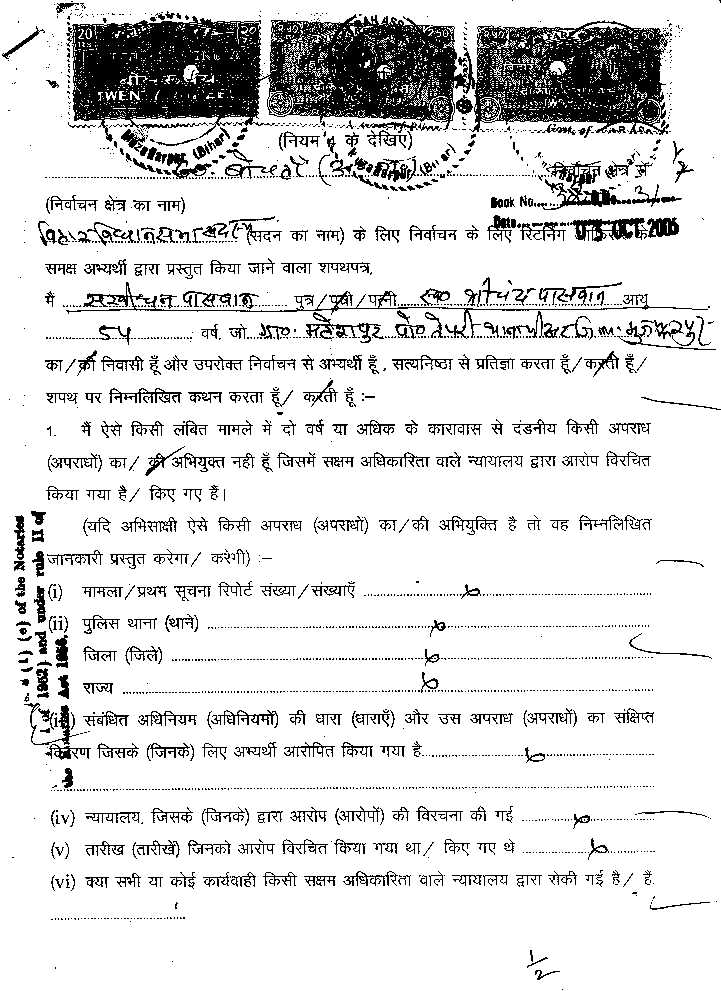 20
TWEN
Muzaffarpur (Bihar)
Muzaffarpur (Bihar)
(नियम 4 के देखिए)
निर्वाचन क्षेत्र से
1/2
Book No.
(निर्वाचन क्षेत्र का नाम)
Date 03 OCT 2005
बिहार विधान सभा सदस्य (सदन का नाम) के लिए निर्वाचन के लिए रिटर्निंग ऑफिसर के
समक्ष अभ्यर्थी द्वारा प्रस्तुत किया जाने वाला शपथपत्र,
मैं पासवान पुत्र/पुत्री/पत्नी स्व० पासवान आयु
54 वर्ष, जो ग्रा० महेशपुर पो० तेपरी थाना जिला मुजफ्फरपुर
का/की निवासी हूँ और उपरोक्त निर्वाचन से अभ्यर्थी हूँ, सत्यनिष्ठा से प्रतिज्ञा करता हूँ/करती हूँ/
शपथ पर निम्नलिखित कथन करता हूँ/ करती हूँ :–
1. मैं ऐसे किसी लंबित मामले में दो वर्ष या अधिक के कारावास से दंडनीय किसी अपराध
(अपराधों) का/ की अभियुक्त नही हूँ जिसमें सक्षम अधिकारिता वाले न्यायालय द्वारा आरोप विरचित
किया गया है/ किए गए हैं।
(यदि अभिसाक्षी ऐसे किसी अपराध (अपराधों) का/की अभियुक्ति है तो वह निम्नलिखित
जानकारी प्रस्तुत करेगा/ करेगी) :–
(i) मामला/प्रथम सूचना रिपोर्ट संख्या/संख्याएँ ..... x
(ii) पुलिस थाना (थाने) ..... x
जिला (जिले) ..... x
राज्य ..... x
(iii) संबंधित अधिनियम (अधिनियमों) की धारा (धाराएँ) और उस अपराध (अपराधों) का संक्षिप्त
विवरण जिसके (जिनके) लिए अभ्यर्थी आरोपित किया गया है ..... x
(iv) न्यायालय, जिसके (जिनके) द्वारा आरोप (आरोपों) की विरचना की गई ..... x
(v) तारीख (तारीखें) जिनको आरोप विरचित किया गया था/ किए गए थे ..... x
(vi) क्या सभी या कोई कार्यवाही किसी सक्षम अधिकारिता वाले न्यायालय द्वारा रोकी गई है/ हैं.
8 (1) (e) of the Notaries
1 of 1952) and under rule 11 of
the Notaries Act 1956.
1/2